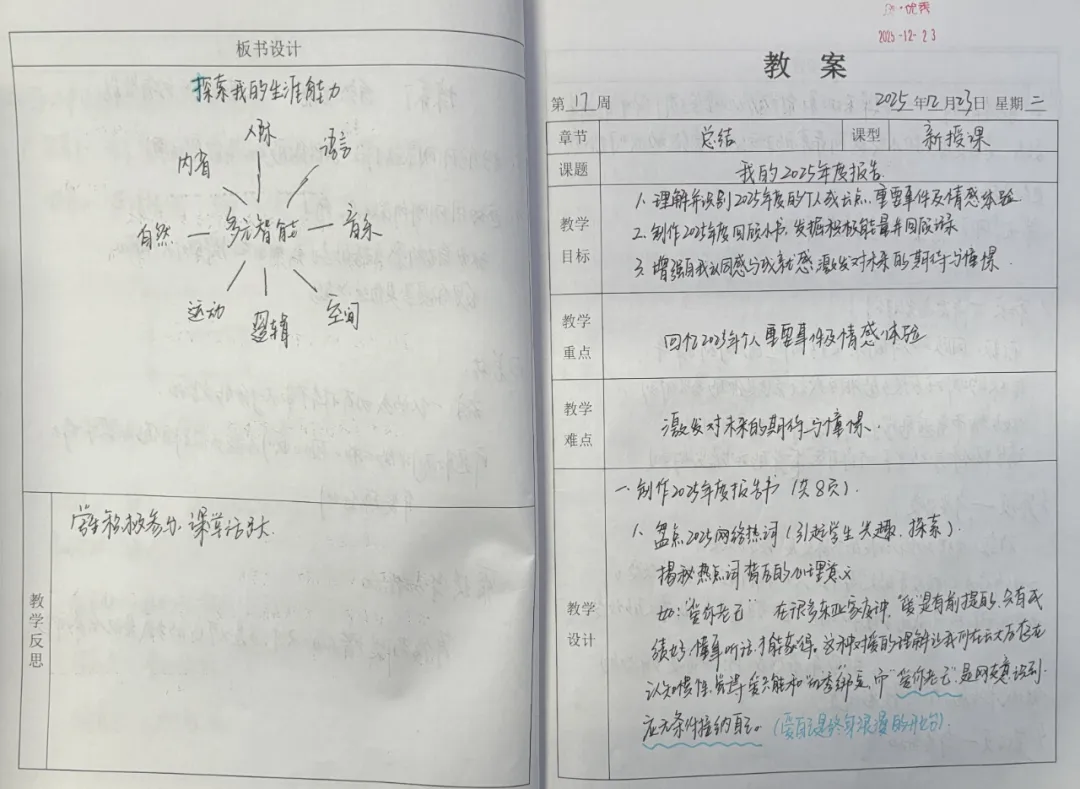 板书设计
探索我的生涯能力
人际
语言
内省
自然
多元智能
音乐
运动
逻辑
空间
教学反思
学生积极参与，课堂活跃大
优秀
2025-12-23
教 案
第 17 周 2025 年 12 月 23 日 星期 二
章节 总结 课型 新授课
课题 我的2025年度报告.
教学目标
1. 理解并识别2025年度的个人成长点、重要事件及情感体验
2. 制作2025年度回顾小书, 发掘积极能量并回顾记录
3. 增强自我认同感与成就感, 激发对未来的期待与憧憬.
教学重点
回忆2025年个人重要事件及情感体验
教学难点
激发对未来的期待与憧憬.
教学设计
一. 制作2025年度报告书 (共8页).
1. 盘点2025网络热词 (引起学生兴趣、探索).
揭秘热点词背后的心理意义
如: "爱你老己" 在很多东亚家庭中, "爱"是有前提的, 只有成
绩好、懂事听话, 才能获得。这种对爱的理解让我们在长大后存在
认知惯性, 觉得爱只能和"优秀"绑定, 而"爱你老己", 是网友意识到
应无条件接纳自己。(爱自己是终身浪漫的开始).